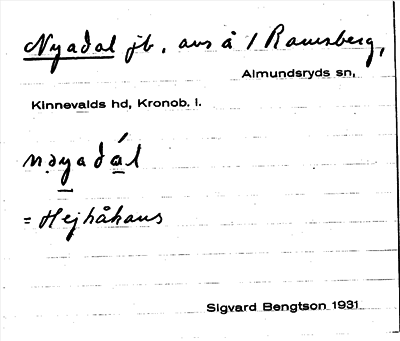 Nyadal jb. avs å 1 Ramsberg,
Almundsryds sn.
Kinnevalds hd, Kronob. l.
nəyadál
= Hejhåhaus
Sigvard Bengtson 1931